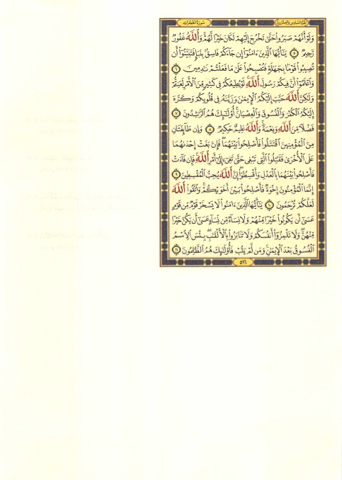 سورة الحجرات
ولو أنهم صبروا حتى تخرج إليهم لكان خيرا لهم والله غفور
رحيم ٥ يأيها الذين ءامنوا إن جاءكم فاسق بنبإ فتبينوا أن
تصيبوا قوما بجهلة فتصبحوا على ما فعلتم ندمين ٦
واعلموا أن فيكم رسول الله لو يطيعكم في كثير من الأمر لعنتم
ولكن الله حبب إليكم الإيمن وزينه في قلوبكم وكره
إليكم الكفر والفسوق والعصيان أولئك هم الرشدون ٧
فضلا من الله ونعمة والله عليم حكيم ٨ وإن طائفتان
من المؤمنين اقتتلوا فأصلحوا بينهما فإن بغت إحدىهما
على الأخرى فقتلوا التي تبغي حتى تفيء إلى أمر الله فإن فاءت
فأصلحوا بينهما بالعدل وأقسطوا إن الله يحب المقسطين ٩
إنما المؤمنون إخوة فأصلحوا بين أخويكم واتقوا الله
لعلكم ترحمون ١٠ يأيها الذين ءامنوا لا يسخر قوم من قوم
عسى أن يكونوا خيرا منهم ولا نساء من نساء عسى أن يكن خيرا
منهن ولا تلمزوا أنفسكم ولا تنابزوا بالألقب بئس الاسم
الفسوق بعد الإيمن ومن لم يتب فأولئك هم الظلمون ١١
٥١٦